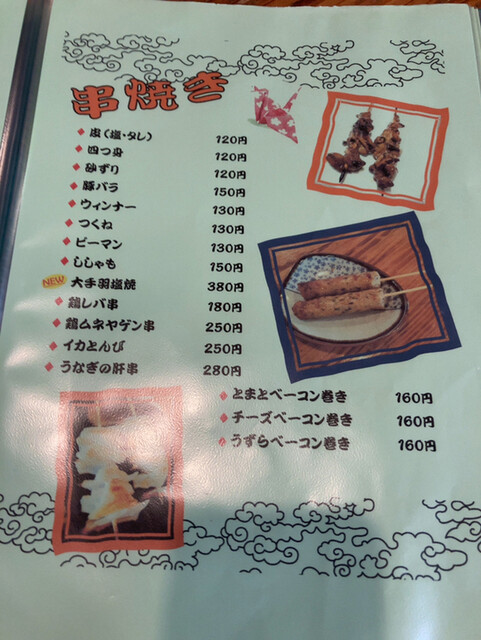 串焼き
皮(塩・タレ) 120円
四つ身 120円
砂ずり 120円
豚バラ 150円
ウィンナー 130円
つくね 130円
ピーマン 130円
ししゃも 150円
NEW 大手羽塩焼 380円
鶏レバ串 180円
鶏ムネヤゲン串 250円
イカとんび 250円
うなぎの肝串 280円
とまとベーコン巻き 160円
チーズベーコン巻き 160円
うずらベーコン巻き 160円